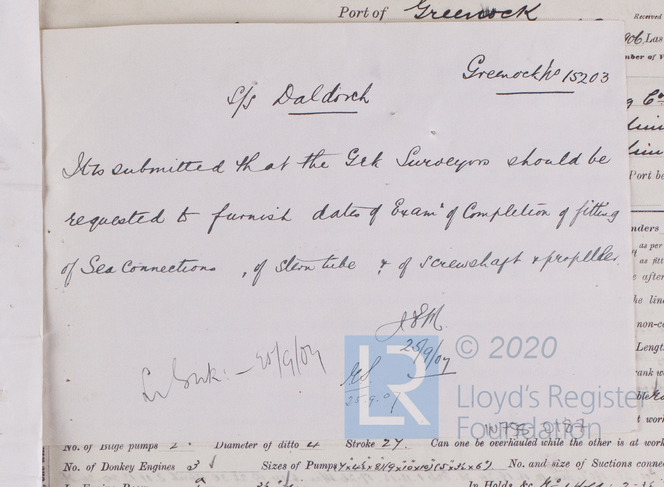 Port of Greenock
Received
906. Las
Greenock No 15203
S/S Daldorch
It is submitted that the Gck Surveyors should be
requested to furnish dates of Exam^n of Completion of fitting
of Sea Connections, of Stern tube & of Screwshaft & propeller.
J.S.M.
25/9/07
25.9.07
© 2020
LR
Lloyd's Register
Foundation
W796-0187
Port be
as per
as fit
e after
he lin
non-co
Length
rank w
at work
No. of Bilge pumps 2 Diameter of ditto 4 Stroke 27 Can one be overhauled while the other is at work
No. of Donkey Engines 3 Sizes of Pumps No. and size of Suctions connec
In Holds, &c.